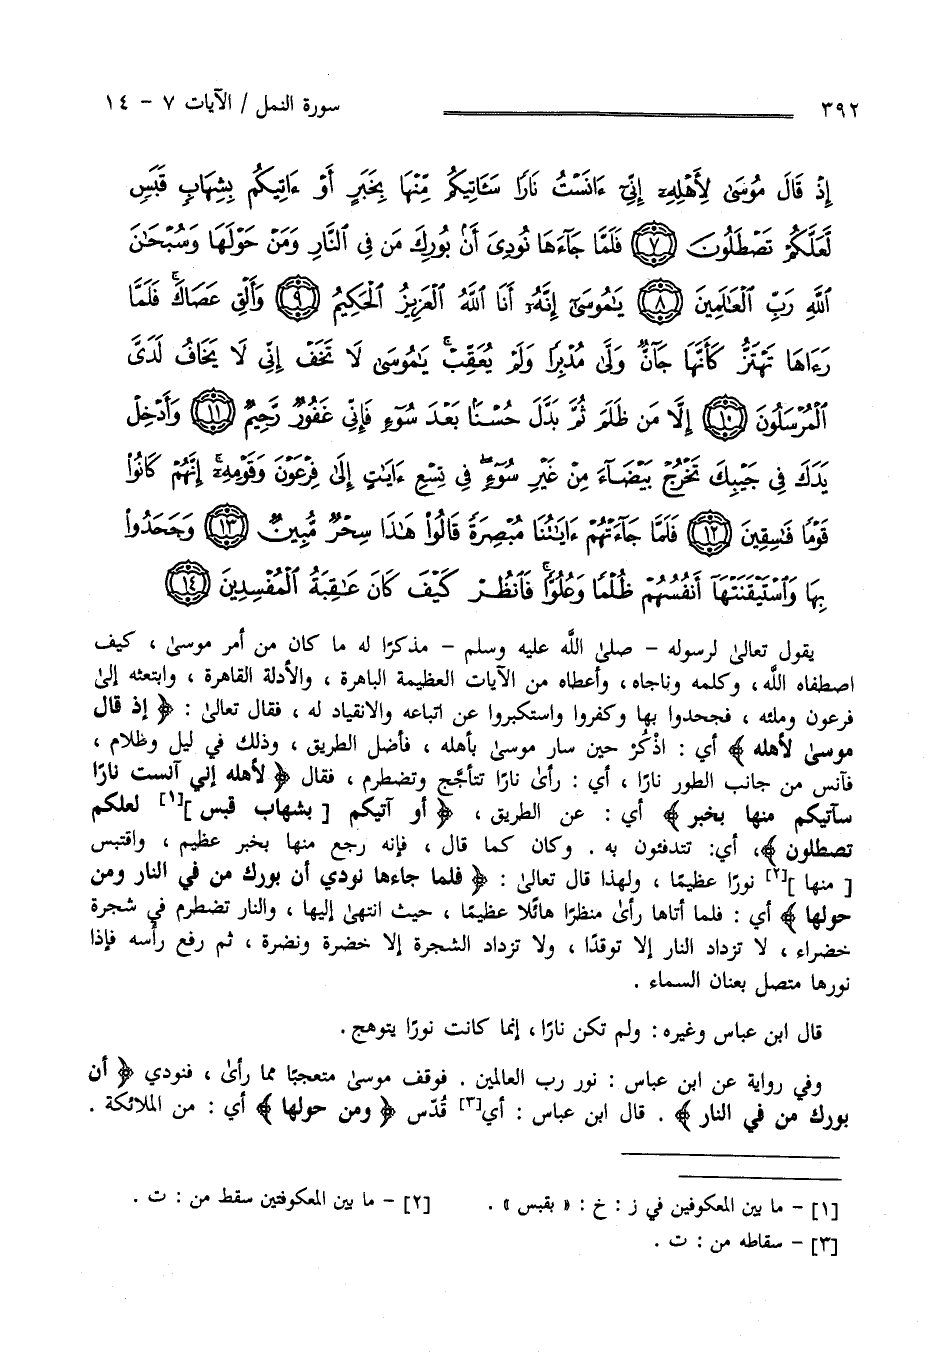 ٣٩٢ سورة النمل / الآيات ٧ – ١٤
إِذْ قَالَ مُوسَىٰ لِأَهْلِهِۦٓ إِنِّىٓ ءَانَسْتُ نَارًا سَـَٔاتِيكُم مِّنْهَا بِخَبَرٍ أَوْ ءَاتِيكُم بِشِهَابٍ قَبَسٍ
لَّعَلَّكُمْ تَصْطَلُونَ ﴿٧﴾ فَلَمَّا جَآءَهَا نُودِىَ أَنۢ بُورِكَ مَن فِى ٱلنَّارِ وَمَنْ حَوْلَهَا وَسُبْحَٰنَ
ٱللَّهِ رَبِّ ٱلْعَٰلَمِينَ ﴿٨﴾ يَٰمُوسَىٰٓ إِنَّهُۥٓ أَنَا ٱللَّهُ ٱلْعَزِيزُ ٱلْحَكِيمُ ﴿٩﴾ وَأَلْقِ عَصَاكَ ۚ فَلَمَّا
رَءَاهَا تَهْتَزُّ كَأَنَّهَا جَآنٌّ وَلَّىٰ مُدْبِرًا وَلَمْ يُعَقِّبْ ۚ يَٰمُوسَىٰ لَا تَخَفْ إِنِّى لَا يَخَافُ لَدَىَّ
ٱلْمُرْسَلُونَ ﴿١٠﴾ إِلَّا مَن ظَلَمَ ثُمَّ بَدَّلَ حُسْنًۢا بَعْدَ سُوٓءٍ فَإِنِّى غَفُورٌ رَّحِيمٌ ﴿١١﴾ وَأَدْخِلْ
يَدَكَ فِى جَيْبِكَ تَخْرُجْ بَيْضَآءَ مِنْ غَيْرِ سُوٓءٍ ۖ فِى تِسْعِ ءَايَٰتٍ إِلَىٰ فِرْعَوْنَ وَقَوْمِهِۦٓ ۚ إِنَّهُمْ كَانُوا۟
قَوْمًا فَٰسِقِينَ ﴿١٢﴾ فَلَمَّا جَآءَتْهُمْ ءَايَٰتُنَا مُبْصِرَةً قَالُوا۟ هَٰذَا سِحْرٌ مُّبِينٌ ﴿١٣﴾ وَجَحَدُوا۟
بِهَا وَٱسْتَيْقَنَتْهَآ أَنفُسُهُمْ ظُلْمًا وَعُلُوًّا ۚ فَٱنظُرْ كَيْفَ كَانَ عَٰقِبَةُ ٱلْمُفْسِدِينَ ﴿١٤﴾
يقول تعالىٰ لرسوله – صلىٰ اللَّه عليه وسلم – مذكرًا له ما كان من أمر موسىٰ ، كيف
اصطفاه اللَّه، وكلمه وناجاه، وأعطاه من الآيات العظيمة الباهرة ، والأدلة القاهرة ، وابتعثه إلىٰ
فرعون وملئه ، فجحدوا بها وكفروا واستكبروا عن اتباعه والانقياد له ، فقال تعالىٰ : ﴿ إذ قال
موسىٰ لأهله ﴾ أي : اذْكُرْ حين سار موسىٰ بأهله ، فأضل الطريق ، وذلك في ليل وظلام ،
فآنس من جانب الطور نارًا ، أي : رأىٰ نارًا تتأجَّج وتضطرم ، فقال ﴿ لأهله إني آنست نارًا
سآتيكم منها بخبر ﴾ أي : عن الطريق ، ﴿ أو آتيكم [ بشهاب قبس ][١] لعلكم
تصطلون ﴾، أي: تتدفئون به . وكان كما قال ، فإنه رجع منها بخبر عظيم ، واقتبس
[ منها ][٢] نورًا عظيمًا ، ولهذا قال تعالىٰ : ﴿ فلما جاءها نودي أن بورك من في النار ومن
حولها ﴾ أي : فلما أتاها رأىٰ منظرًا هائلًا عظيمًا ، حيث انتهىٰ إليها ، والنار تضطرم في شجرة
خضراء ، لا تزداد النار إلا توقدًا ، ولا تزداد الشجرة إلا خضرة ونضرة ، ثم رفع رأسه فإذا
نورها متصل بعنان السماء .
قال ابن عباس وغيره: ولم تكن نارًا، إنما كانت نورًا يتوهج.
وفي رواية عن ابن عباس : نور رب العالمين . فوقف موسىٰ متعجبًا مما رأىٰ ، فنودي ﴿ أن
بورك من في النار ﴾ . قال ابن عباس : أي[٣] قُدّس ﴿ ومن حولها ﴾ أي : من الملائكة .
[١] – ما بين المعكوفين في ز : خ : « بقبس » . [٢] – ما بين المعكوفتين سقط من : ت .
[٣] – سقاطه من : ت .